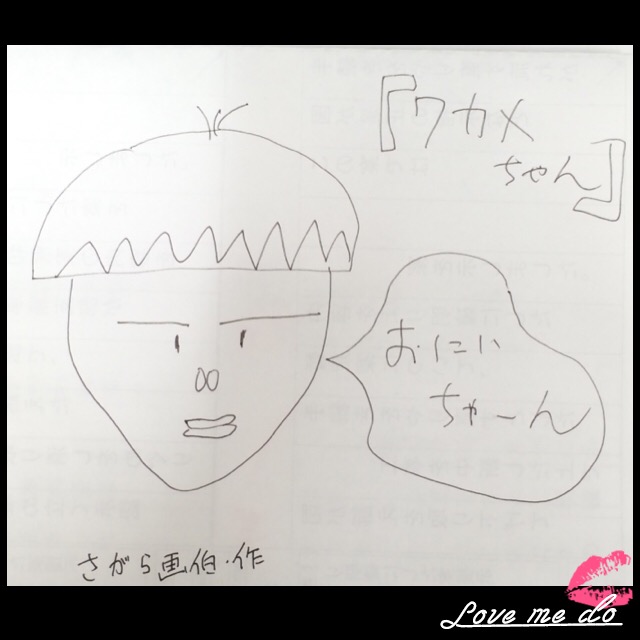 『ワカメ
ちゃん』
おにい
ちゃーん
さがら画伯・作
Love me do